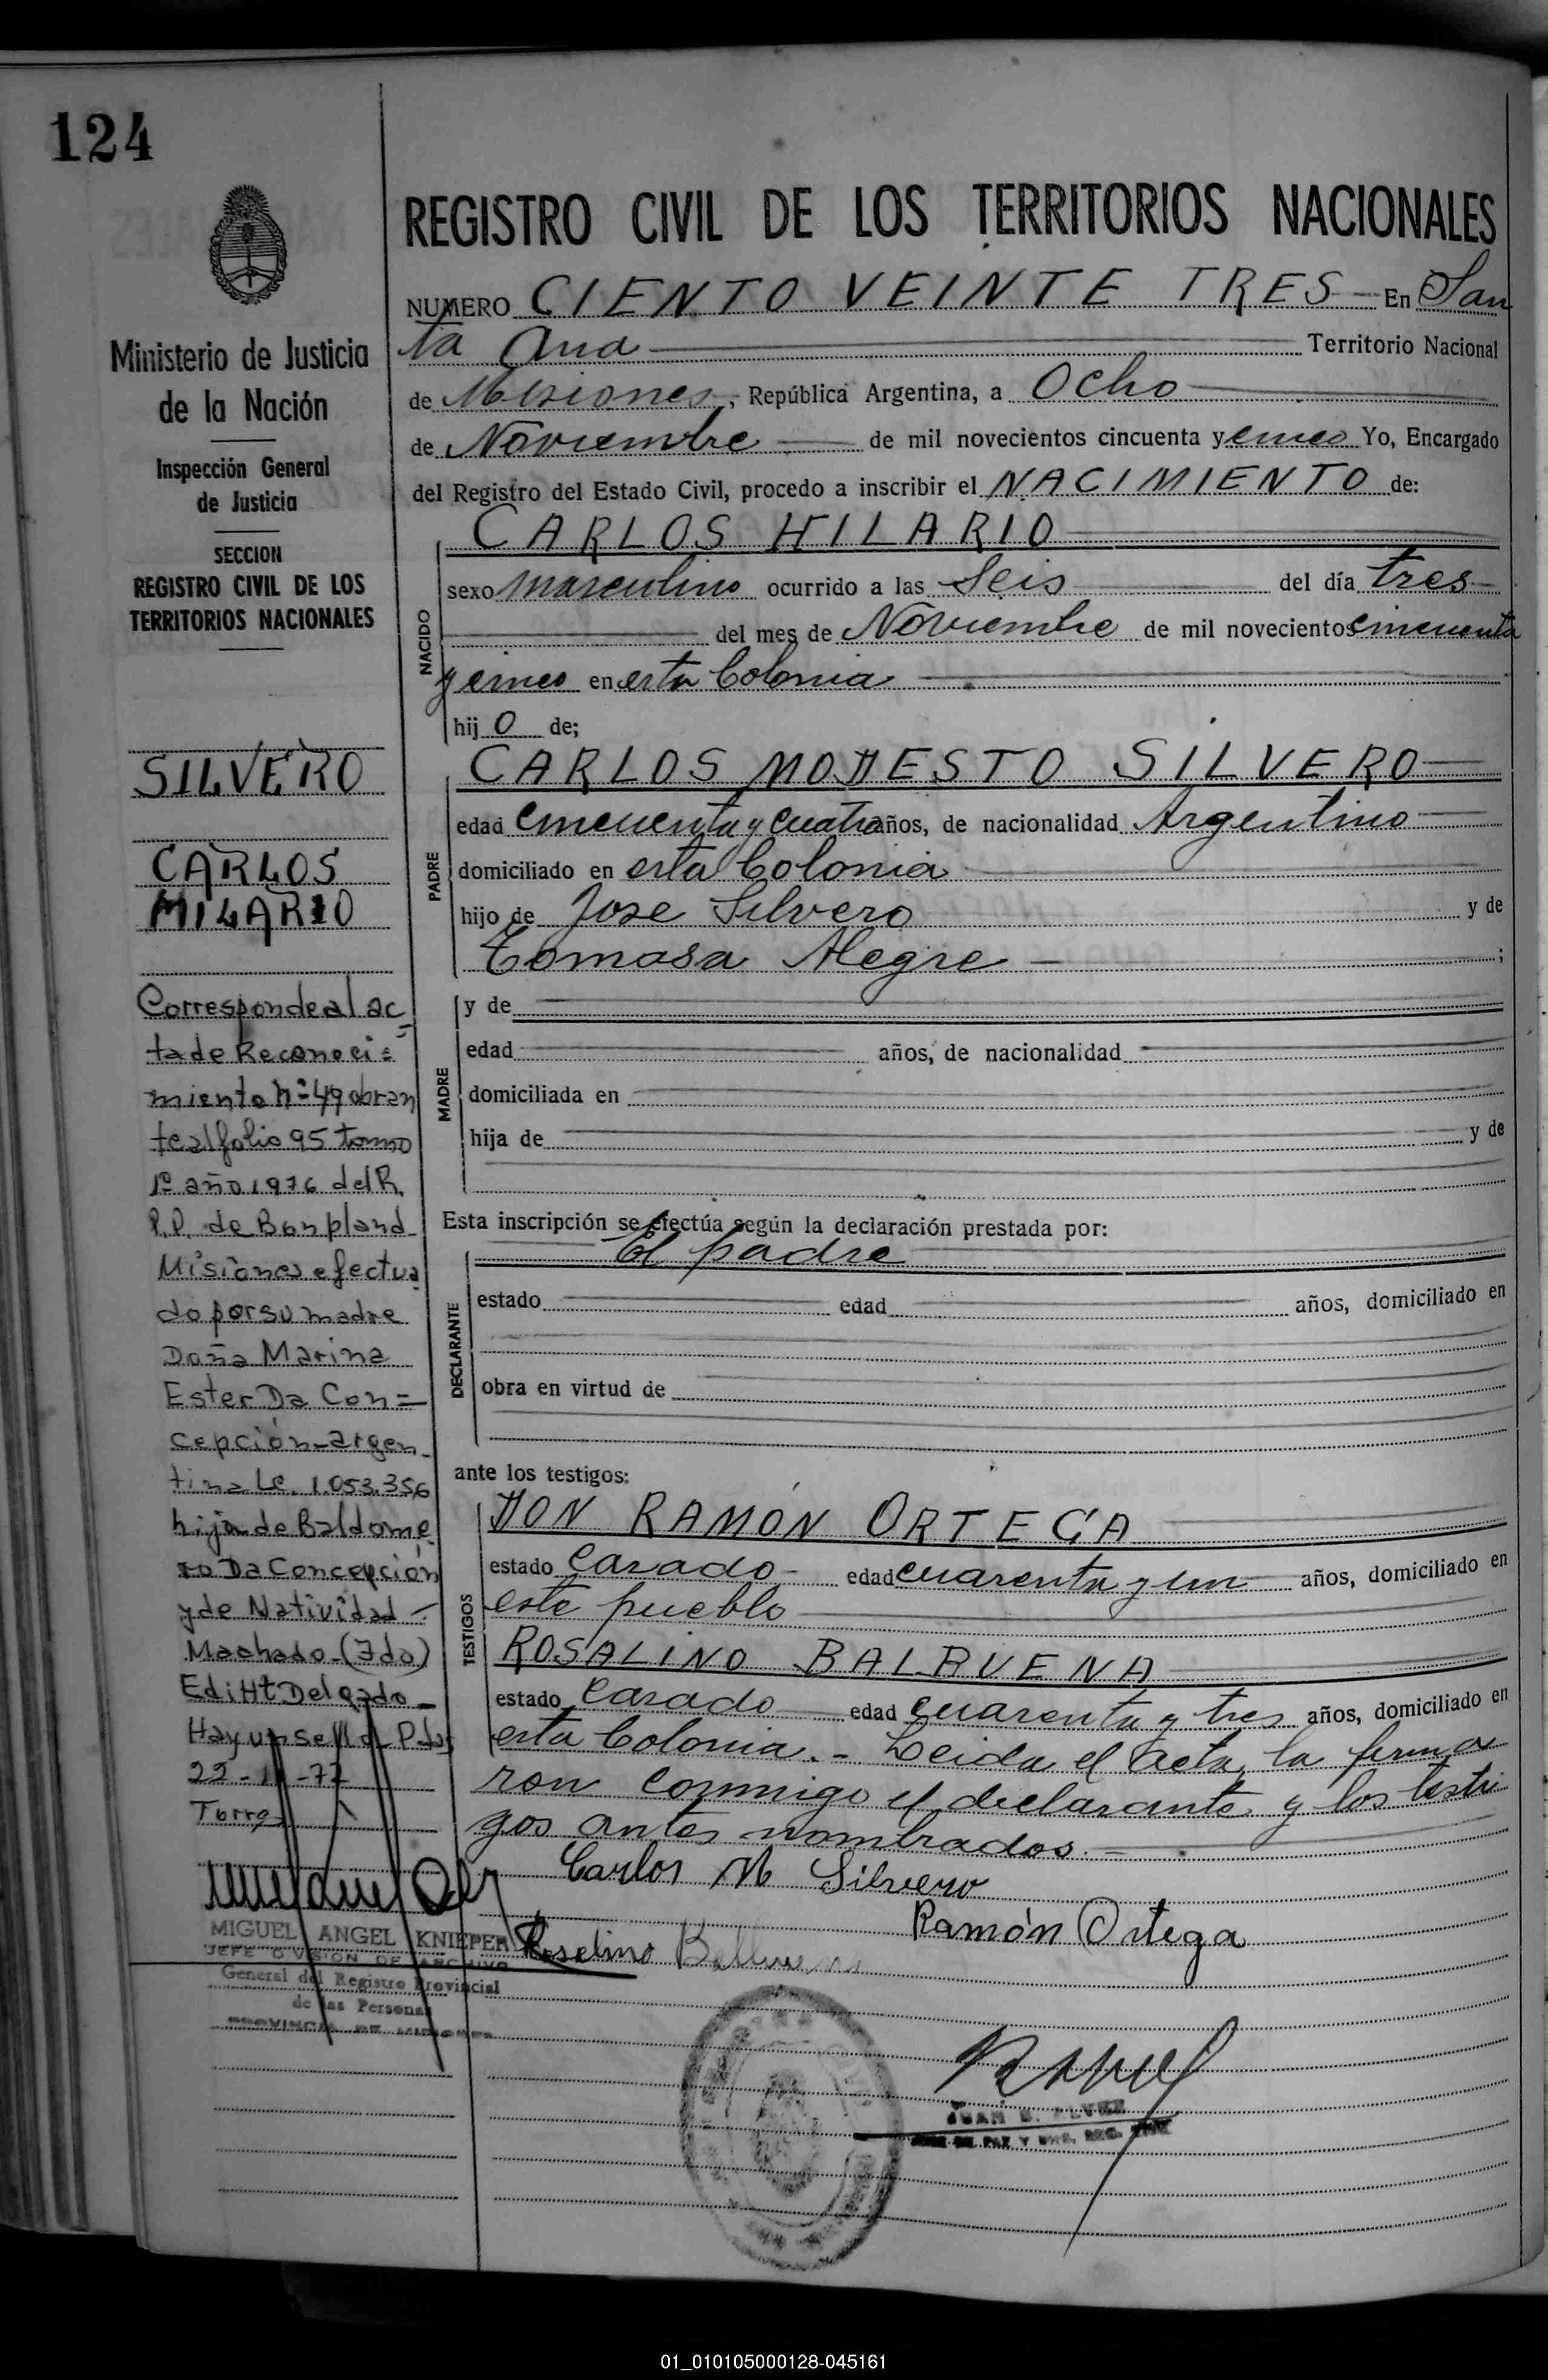 124
Ministerio de Justicia
de la Nación
Inspección General
de Justicia
SECCION
REGISTRO CIVIL DE LOS
TERRITORIOS NACIONALES
SILVERO
CARLOS
HILARIO
Corresponde al ac
ta de Reconoci=
miento nº 49 obran
te al folio 95 tomo
1º año 1976 del R.
P.P. de Bonpland
Misiones efectua
do por su madre
Doña Marina
Ester Da Con=
cepción-argen-
tina Lc. 1.053.356
hija de Baldome
ro Da Concepción
y de Natividad -
Machado-(Fdo)
Ediht Delgado-
Hay un sello Pdas
22- -77
Torres
MIGUEL ANGEL KNIEPER
JEFE DIVISION DE ARCHIVO
General del Registro Provincial
de las Personas
PROVINCIA DE MISIONES
REGISTRO CIVIL DE LOS TERRITORIOS NACIONALES
NUMERO CIENTO VEINTE TRES En San
ta Ana Territorio Nacional
de Misiones, República Argentina, a Ocho
de Noviembre de mil novecientos cincuenta y cinco Yo, Encargado
del Registro del Estado Civil, procedo a inscribir el NACIMIENTO de:
NACIDO
CARLOS HILARIO
sexo masculino ocurrido a las Seis del día tres
del mes de Noviembre de mil novecientos cincuenta
y cinco en esta Colonia
hij o de;
PADRE
CARLOS MODESTO SILVERO
edad cincuenta y cuatro años, de nacionalidad Argentino
domiciliado en esta Colonia
hijo de Jose Silvero y de
Tomasa Alegre ;
MADRE
y de
edad años, de nacionalidad
domiciliada en
hija de y de
Esta inscripción se efectúa según la declaración prestada por:
DECLARANTE
El padre
estado edad años, domiciliado en
obra en virtud de
ante los testigos:
TESTIGOS
DON RAMÓN ORTEGA
estado casado edad cuarenta y un años, domiciliado en
este pueblo
ROSALINO BALBUENA
estado casado edad cuarenta y tres años, domiciliado en
esta Colonia.- Leida el acta, la firma
ron conmigo el declarante y los testi
gos antes nombrados.-
Carlos M Silvero
Ramón Ortega
Roselino
JUAN
JUEZ DE PAZ Y ENC. REG. CIVIL
01_010105000128-045161